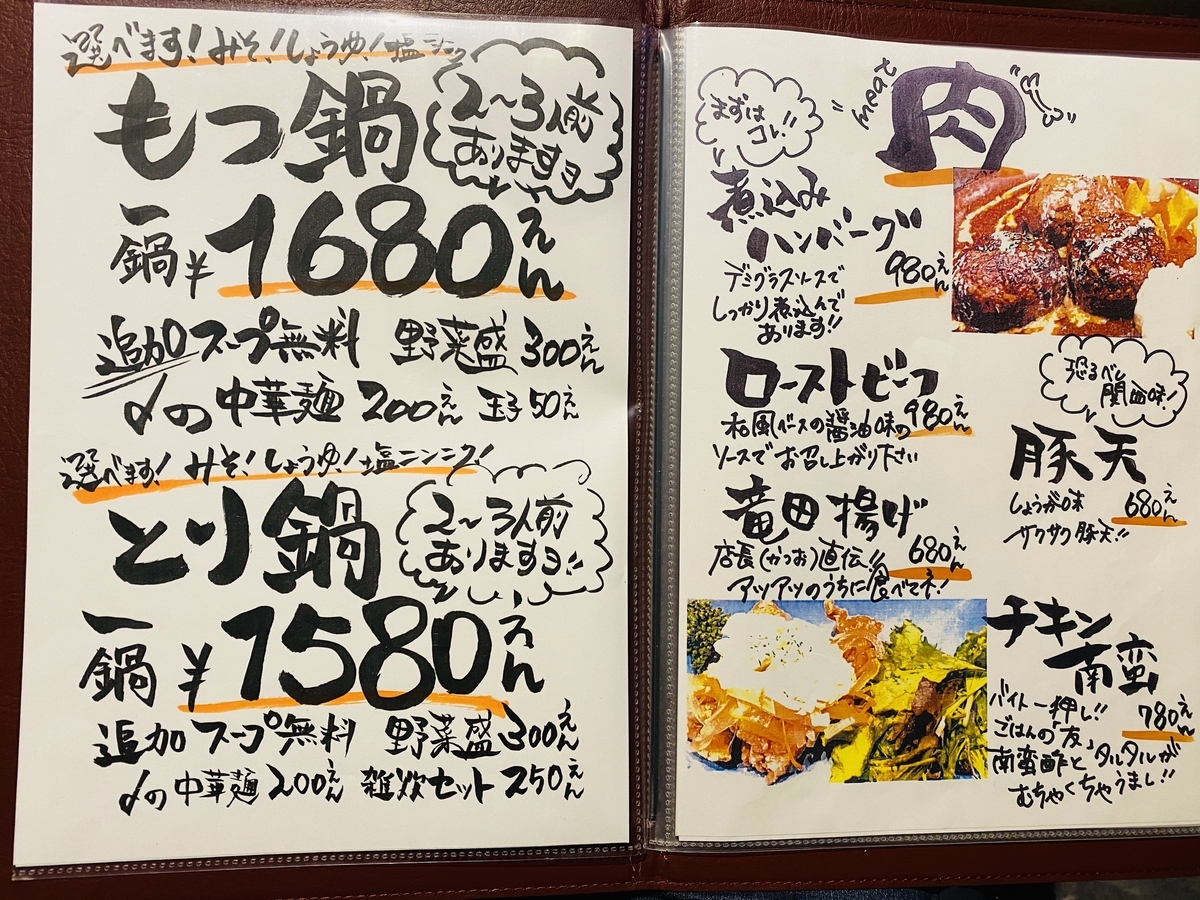 選べます！みそ！しょうゆ！塩ニンニク
もつ鍋
2〜3人前
ありますヨ
一鍋￥1680えん
追加スープ無料 野菜盛300えん
〆の中華麺200えん 玉子50えん
選べます！みそ！しょうゆ！塩ニンニク！
とり鍋
2〜3人前
ありますヨ!!
一鍋￥1580えん
追加スープ無料 野菜盛300えん
〆の中華麺200えん 雑炊セット250えん
meat
肉
まずは
コレ!!
煮込み
ハンバーグ
980えん
デミグラスソースで
しっかり煮込んで
あります!!
ローストビーフ
和風ベースの醤油味の980えん
ソースでお召し上がり下さい
竜田揚げ
店長(かつお)直伝!! 680えん
アツアツのうちに食べてネ！
恐るべし
関西味！
豚天
しょうが味 680えん
サクサク豚天!!
チキン
南蛮
バイト一押し!! 780えん
ごはんの「友」
南蛮酢とタルタルが
むちゃくちゃうまし!!